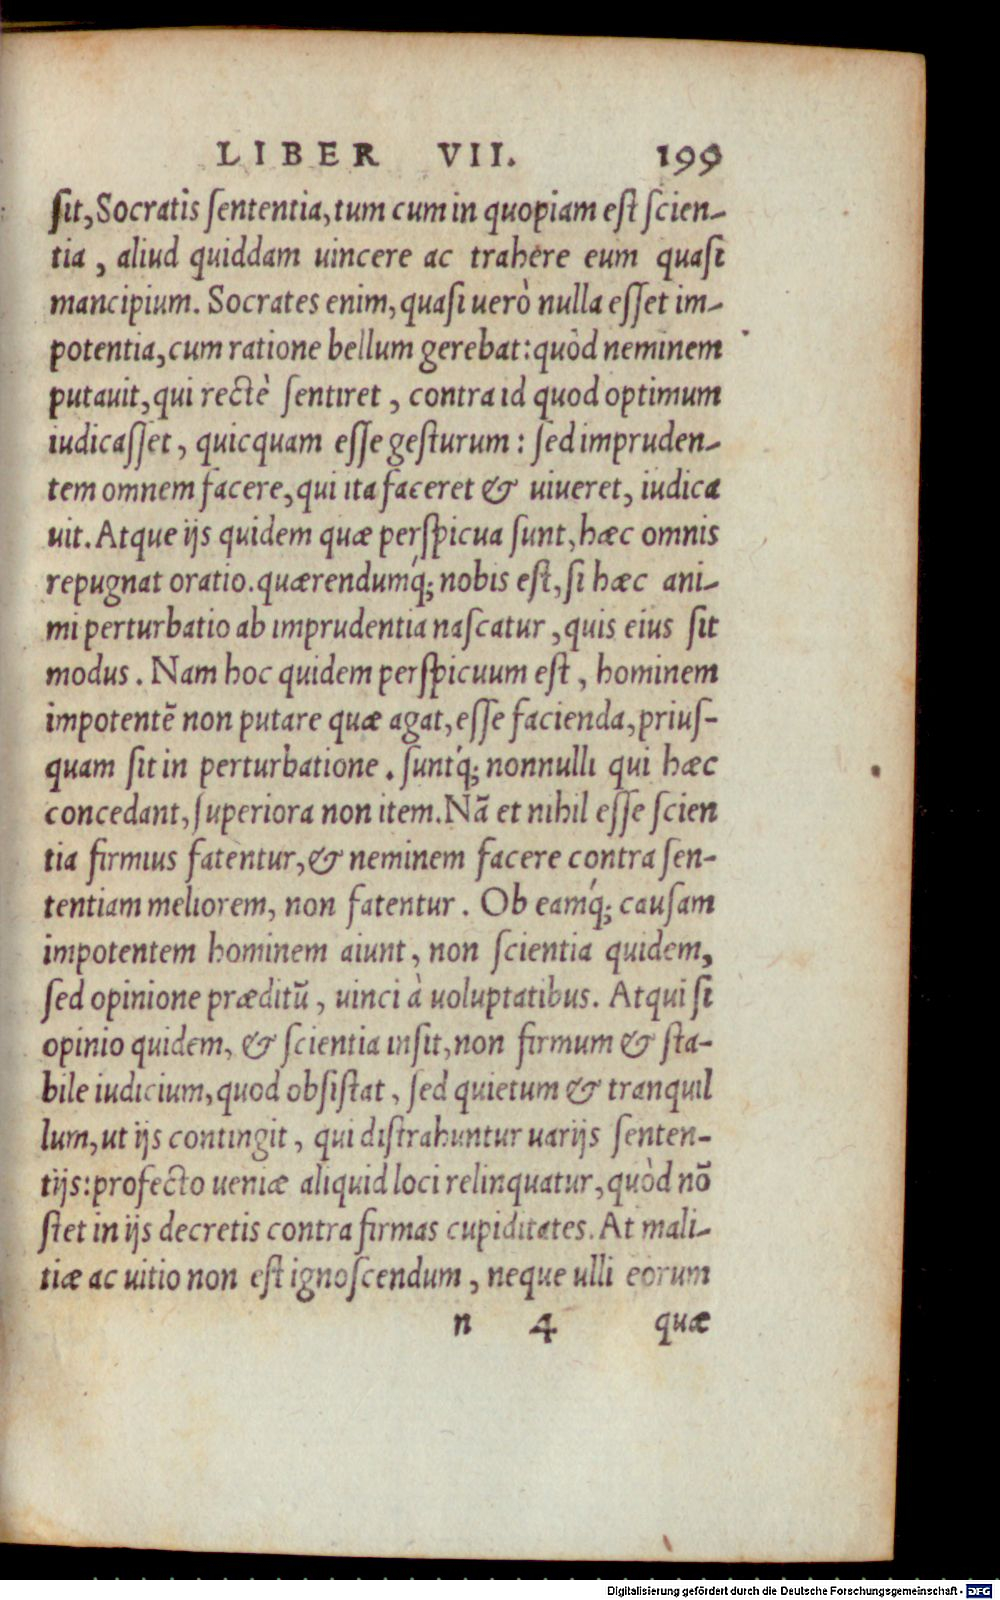 LIBER VII. 199
sit, Socratis sententia, tum cum in quopiam est scien-
tia, aliud quiddam uincere ac trahere eum quasi
mancipium. Socrates enim, quasi uerò nulla esset im-
potentia, cum ratione bellum gerebat: quòd neminem
putauit, qui rectè sentiret, contra id quod optimum
iudicasset, quicquam esse gesturum: sed impruden-
tem omnem facere, qui ita faceret & uiueret, iudica
uit. Atque ijs quidem quæ perspicua sunt, hæc omnis
repugnat oratio. quærendumq́; nobis est, si hæc ani-
mi perturbatio ab imprudentia nascatur, quis eius sit
modus. Nam hoc quidem perspicuum est, hominem
impotentē non putare quæ agat, esse facienda, prius-
quam sit in perturbatione. suntq́; nonnulli qui hæc
concedant, superiora non item. Nã et nihil esse scien
tia firmius fatentur, & neminem facere contra sen-
tentiam meliorem, non fatentur. Ob eamq́; causam
impotentem hominem aiunt, non scientia quidem,
sed opinione præditū, uinci à uoluptatibus. Atqui si
opinio quidem, & scientia insit, non firmum & sta-
bile iudicium, quod obsistat, sed quietum & tranquil
lum, ut ijs contingit, qui distrahuntur uarijs senten-
tijs: profecto ueniæ aliquid loci relinquatur, quòd nō
stet in ijs decretis contra firmas cupiditates. At mali-
tiæ ac uitio non est ignoscendum, neque ulli eorum
n 4 quæ
Digitalisierung gefördert durch die Deutsche Forschungsgemeinschaft - DFG